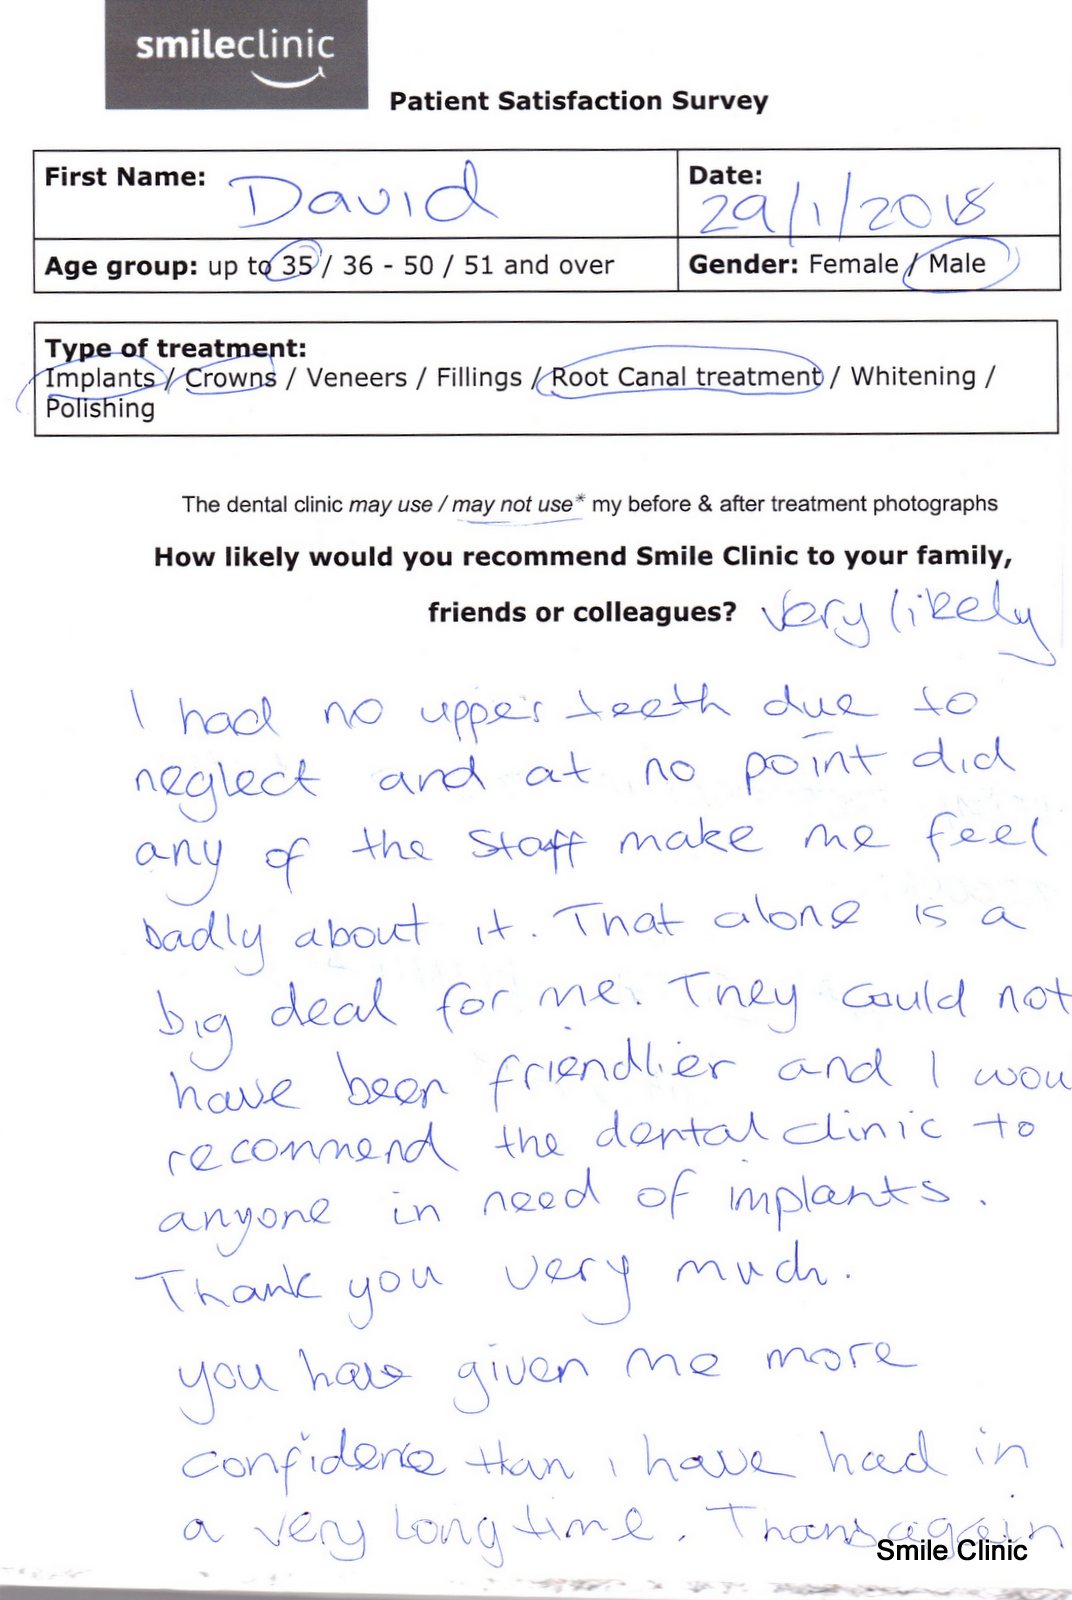 smileclinic
Patient Satisfaction Survey
First Name: David
Date: 29/1/2018
Age group: up to 35 / 36 - 50 / 51 and over
Gender: Female / Male
Type of treatment:
Implants / Crowns / Veneers / Fillings / Root Canal treatment / Whitening /
Polishing
The dental clinic may use / may not use* my before & after treatment photographs
How likely would you recommend Smile Clinic to your family,
friends or colleagues? Very likely
I had no upper teeth due to
neglect and at no point did
any of the staff make me feel
badly about it. That alone is a
big deal for me. They could not
have been friendlier and I wou
recommend the dental clinic to
anyone in need of implants.
Thank you very much.
you have given me more
confidence than i have had in
a very long time. Thanks again
Smile Clinic